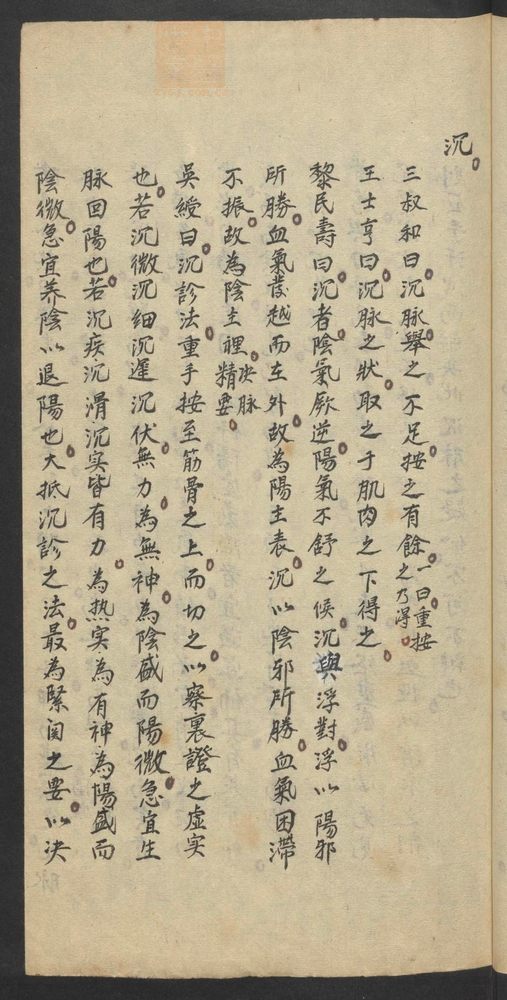 沉
三叔和曰沉脉舉之不足按之有餘一曰重按之乃得
王士亨曰沉脉之狀取之于肌肉之下得之
黎民壽曰沉者陰氣厥逆陽氣不舒之候沉與浮對浮以陽邪
所勝血氣發越而在外故為陽主表沉以陰邪所勝血氣困滯
不振故為陰主裡决脉精要
吳綬曰沉診法重手按至筋骨之上而切之以察裏證之虛实
也若沉微沉细沉遲沉伏無力為無神為陰盛而陽微急宜生
脉回陽也若沉疾沉滑沉实皆有力為热实為有神為陽盛而
陰微急宜养陰以退陽也大抵沉診之法最為緊関之要以决